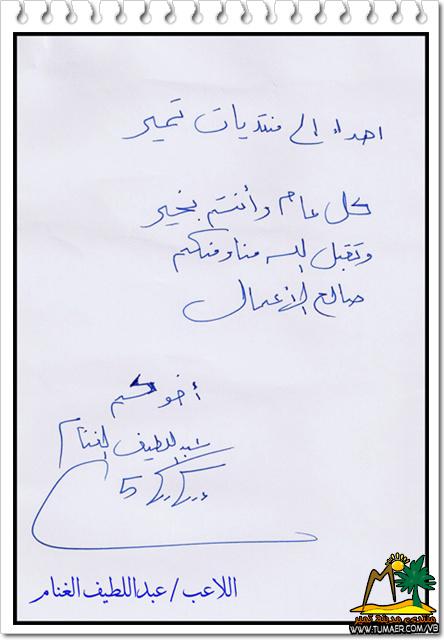 اهداء الى منتديات تمير
كل عام وأنتم بخير
وتقبل الله منا ومنكم
صالح الأعمال
أخوكم
عبداللطيف الغنام
5
اللاعب/عبداللطيف الغنام
منتدى مدينة تمير
WWW.TUMAER.COM/VB